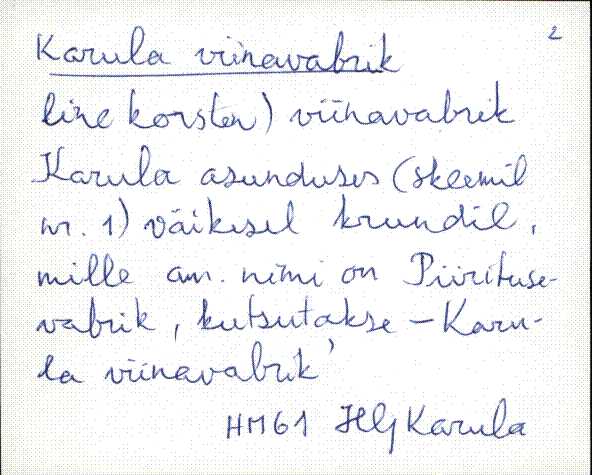 2
Karula viinavabrik
line korsten) viinavabrik
Karula asunduses (skeemil
nr. 1) väikesel krundil,
mille am. nimi on Piirituse-
vabrik, kutsutakse - Karu-
la viinavabrik'
HM61 Hlj Karula